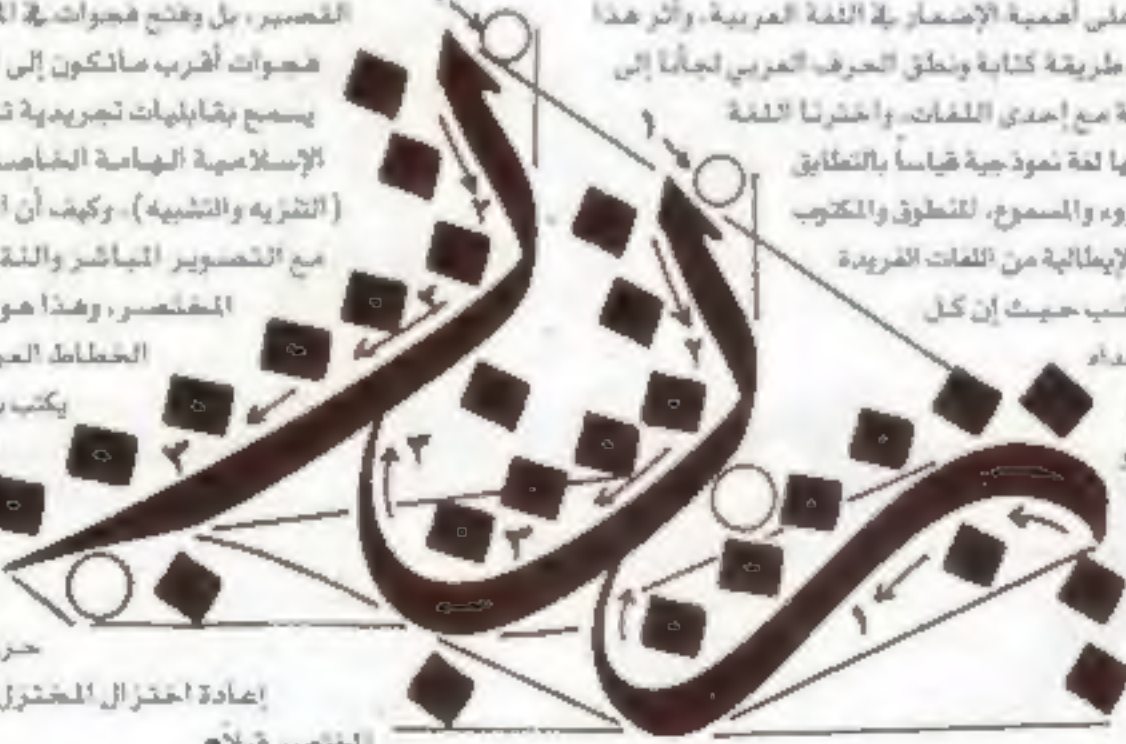 على أهمية الإضمار في اللغة العربية، وأثر هذا
طريقة كتابة ونطق الحرف العربي لجأنا إلى
مع إحدى اللغات، واخترنا اللغة
لغة نموذجية قياساً بالتطابق
والمسموع، المنطوق والمكتوب
الإيطالية من اللغات الفريدة
حيث إن كل
القصير، بل وفتح فجوات في
فجوات أقرب ماتكون إلى
يسمح بقابليات تجريدية
الإسلامية الهامة
(التنزيه والتشبيه)، وكيف أن
مع التصوير المباشر
المختصر، وهذا هو
الخطاط
يكتب
إعادة اختزال المختزل
١
٢
٢
٣
٢
٣
٣
١